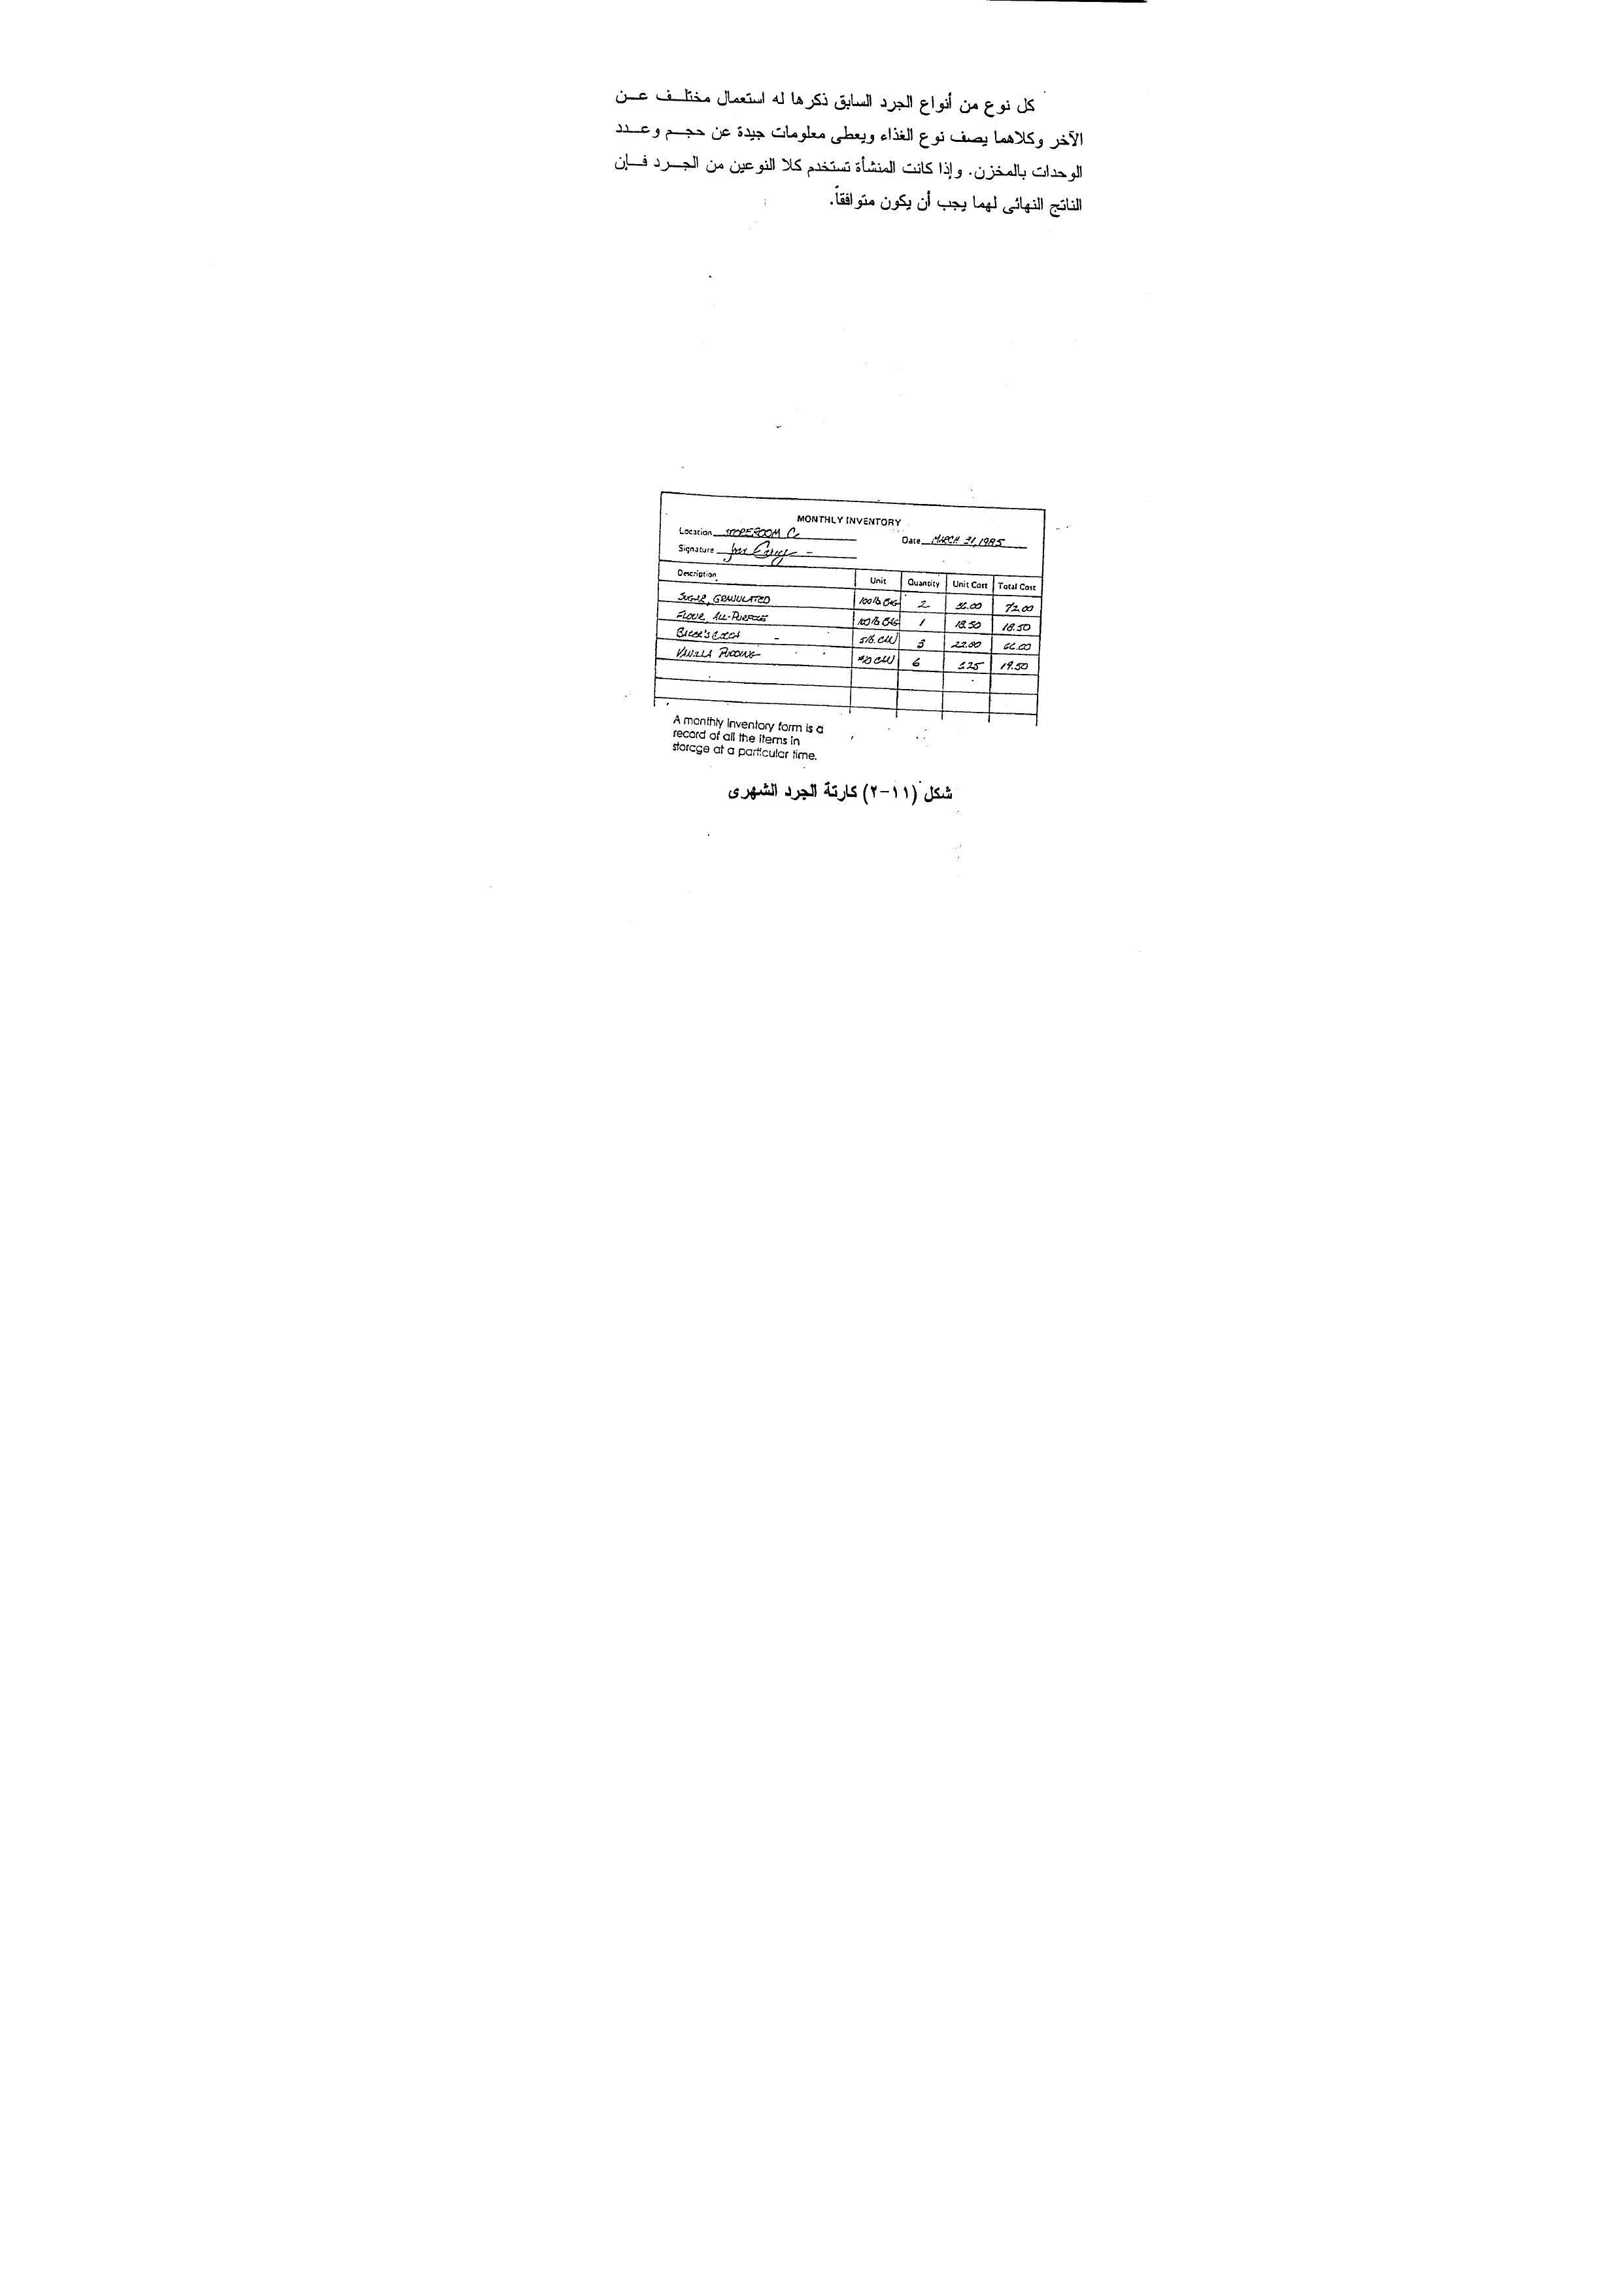 كل نوع من أنواع الجرد السابق ذكرها له استعمال مختلف عن
الآخر وكلاهما يصف نوع الغذاء ويعطى معلومات جيدة عن حجم وعدد
الوحدات بالمخزن. وإذا كانت المنشأة تستخدم كلا النوعين من الجرد فإن
الناتج النهائى لهما يجب أن يكون متوافقاً.
MONTHLY INVENTORY
Location STOREROOM C Date MARCH 31, 1985
Signature
Description Unit Quantity Unit Cost Total Cost
SUGAR, GRANULATED 100 lb BAG 2 36.00 72.00
FLOUR, ALL-PURPOSE 100 lb BAG 1 18.50 18.50
5 lb. CAN 3 22.00 66.00
VANILLA PUDDING #10 CAN 6 3.25 19.50
A monthly inventory form is a
record of all the items in
storage at a particular time.
شكل (١١-٢) كارتة الجرد الشهرى